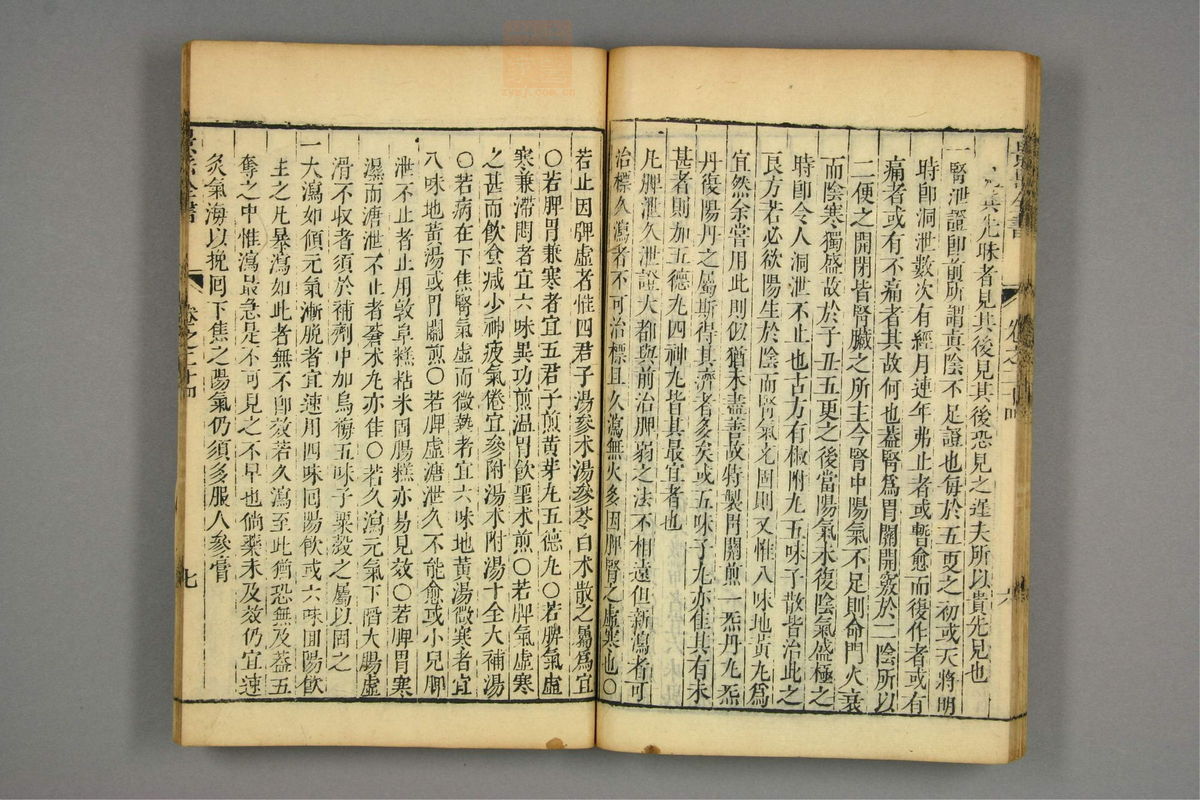 兵先昧者見其後見其後恐見之遲夫所以貴先見也
一腎泄證卽前所謂眞陰不足證也每於五更之初或天將明
時卽洞泄數次有經月連年弗止者或暫愈而復作者或有
痛者或有不痛者其故何也蓋腎爲胃關開竅於二陰所以
二便之開閉皆腎臟之所主今腎中陽氣不足則命門火衰
而陰寒獨盛故於子丑五更之後當陽氣未復陰氣盛極之
時卽令人洞泄不止也古方有椒附丸五味子散皆治此之
良方若必欲陽生於陰而腎氣充固則又惟八味地黃丸爲
宜然余嘗用此則似猶未盡善故特製胃關煎一炁丹九炁
丹復陽丹之屬斯得其濟者多矣或五味子丸亦佳其有未
甚者則加五德丸四神丸皆其最宜者也
凡脾泄久泄證大都與前治脾弱之法不相遠但新瀉者可
治標久瀉者不可治標且久瀉無火多因脾腎之虛寒也〇
若止因脾虛者惟四君子湯參朮湯參苓白朮散之屬爲宜
〇若脾胃兼寒者宜五君子煎黃芽丸五德丸〇若脾氣虛
寒兼滯悶者宜六味異功煎溫胃飮聖朮煎〇若脾氣虛寒
之甚而飮食減少神疲氣倦宜參附湯朮附湯十全大補湯
〇若病在下焦腎氣虛而微熱者宜六味地黃湯微寒者宜
八味地黃湯或胃關煎〇若脾虛溏泄久不能愈或小兒脾
泄不止者止用敦阜糕粘米固腸糕亦易見效〇若脾胃寒
濕而溏泄不止者蒼朮丸亦佳〇若久瀉元氣下陷大腸虛
滑不收者須於補劑中加烏梅五味子粟殼之屬以固之
一大瀉如傾元氣漸脫者宜速用四味囘陽飮或六味囘陽飮
主之凡暴瀉如此者無不卽效若久瀉至此猶恐無及蓋五
奪之中惟瀉最急是不可見之不早也倘藥未及效仍宜速
灸氣海以挽囘下焦之陽氣仍須多服人參膏
景岳全書
卷之二十四
七
zysj.com.cn